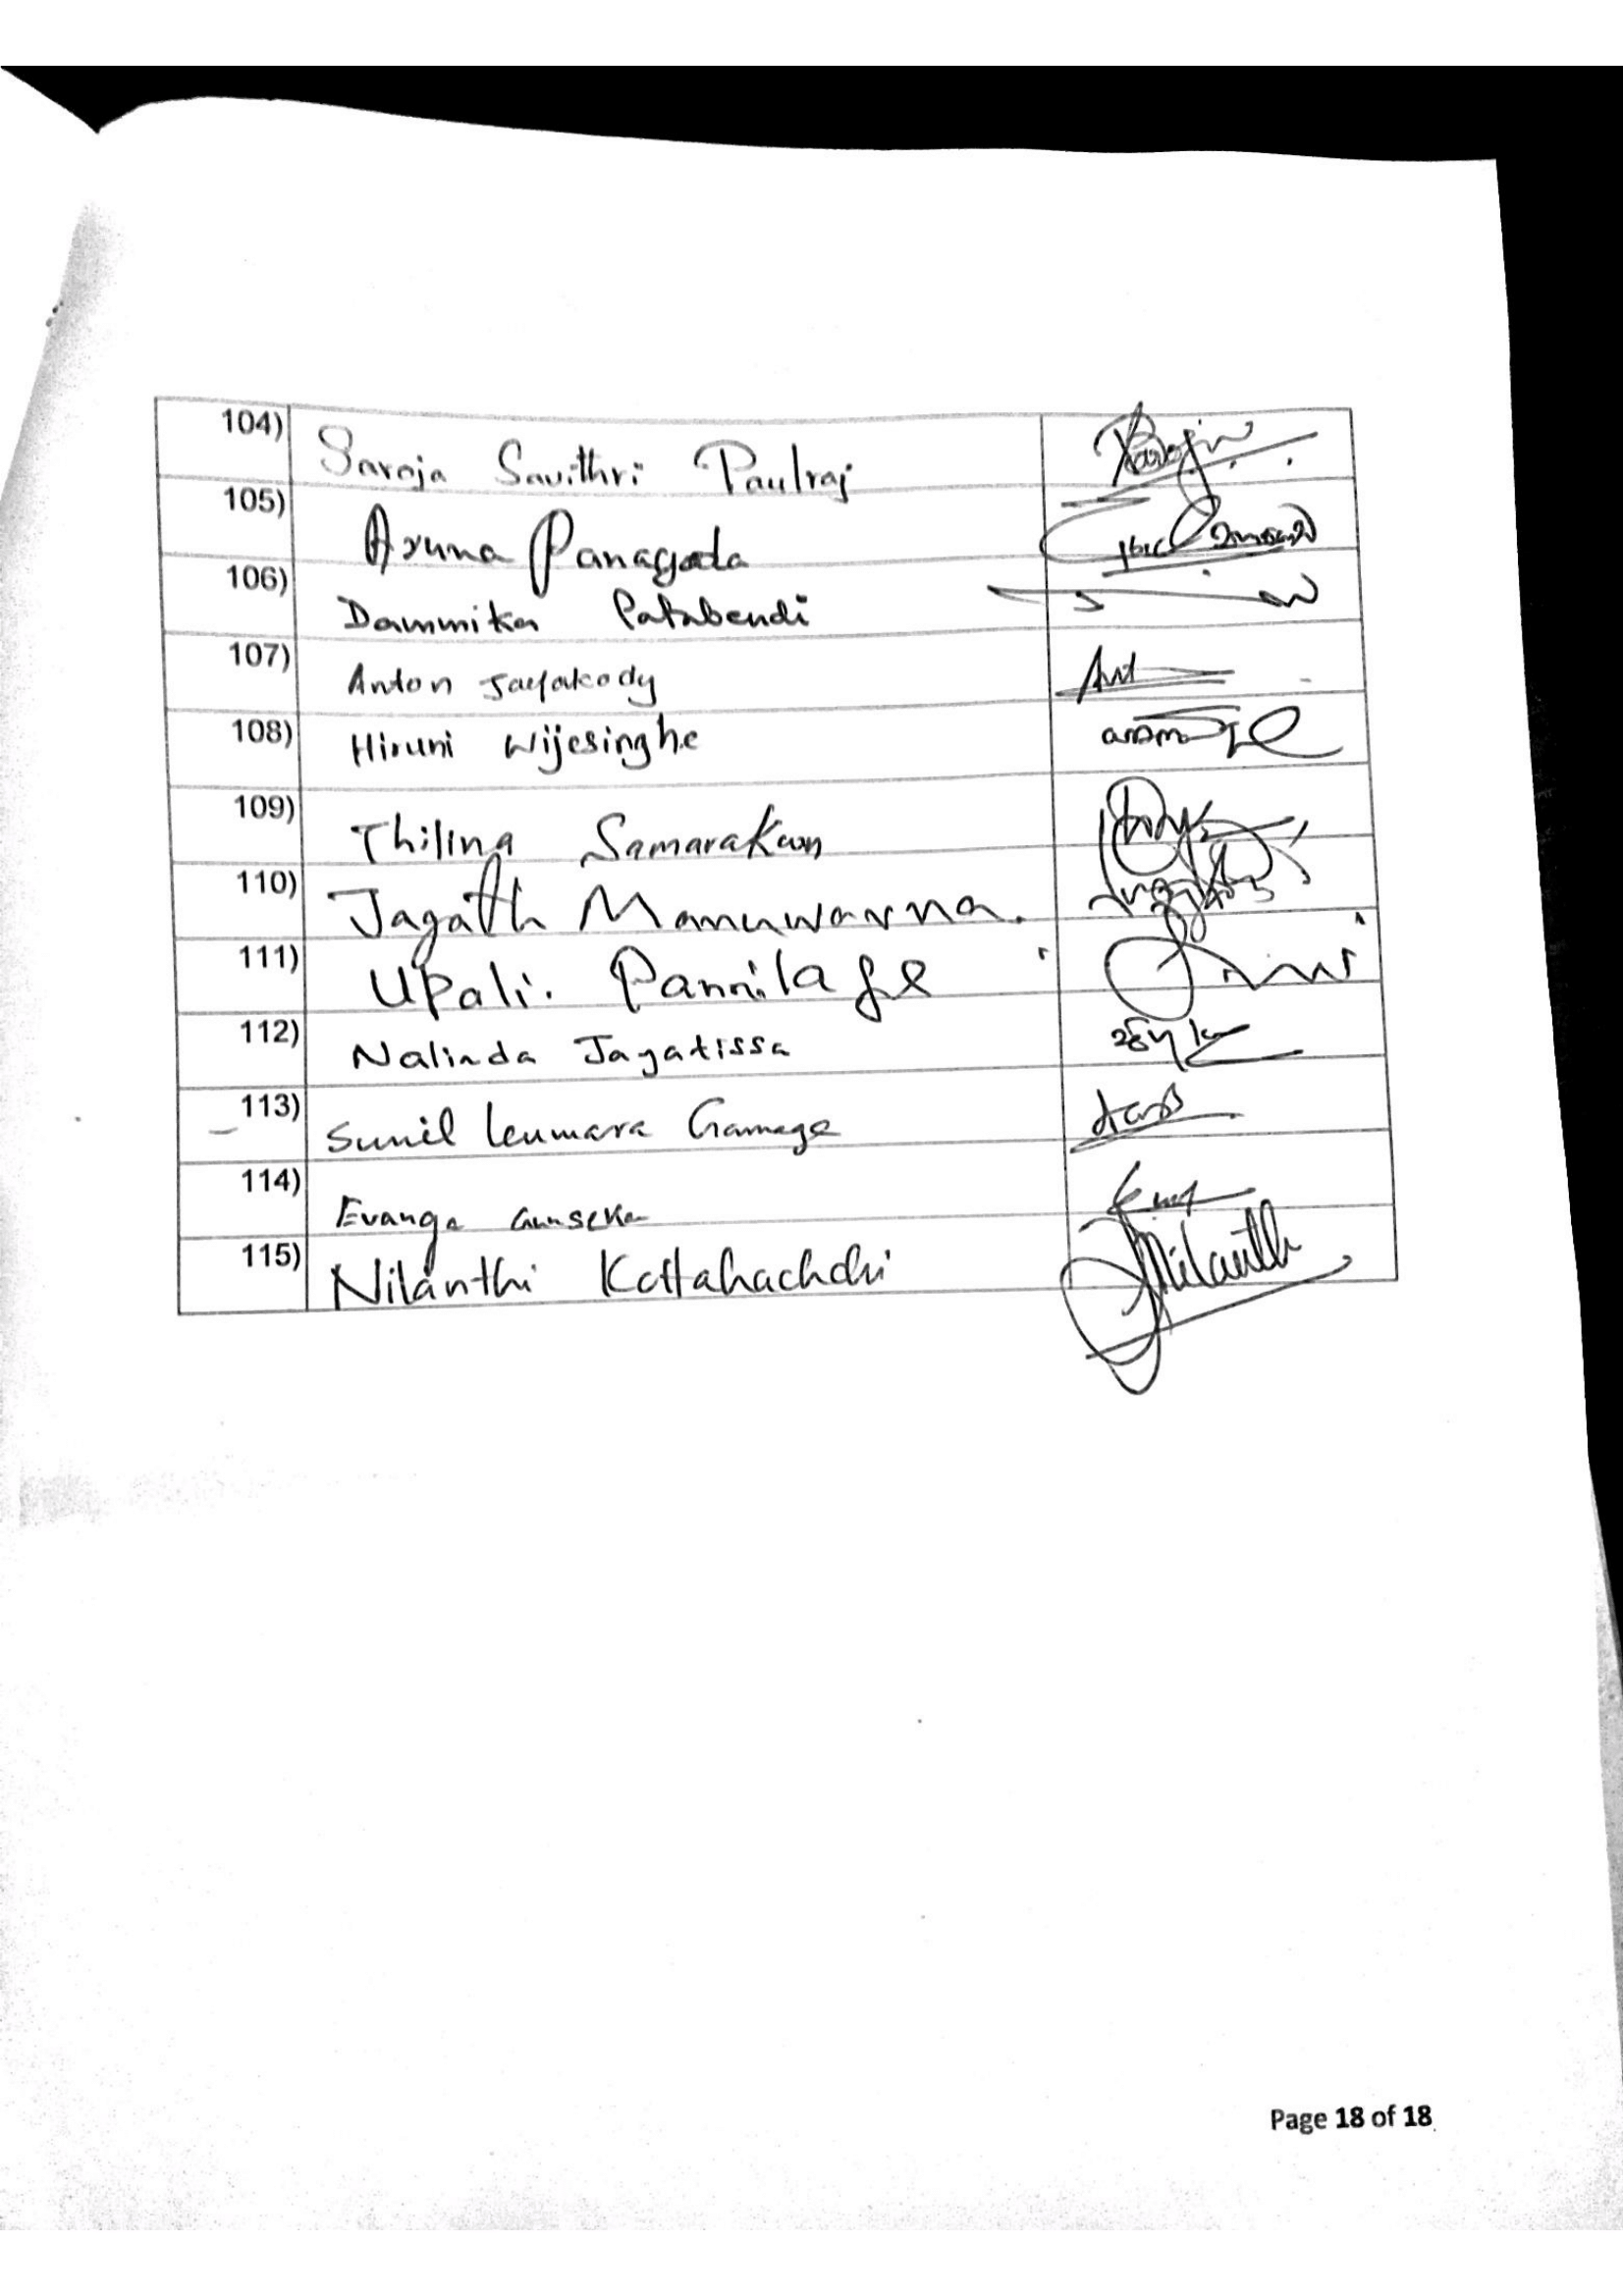 104) Saroja Savithri Paulraj
105) Aruna Panagoda
106) Dammika Patabendi
107) Anton Jayakody
108) Hiruni Wijesinghe
109) Thilina Samarakoon
110) Jagath Manuwarna.
111) Upali. Pannilage
112) Nalinda Jayatissa
113) Sunil Kumara Gamage
114) Evanga Gunseka
115) Nilanthi Kottahachchi Nilanthi
Page 18 of 18